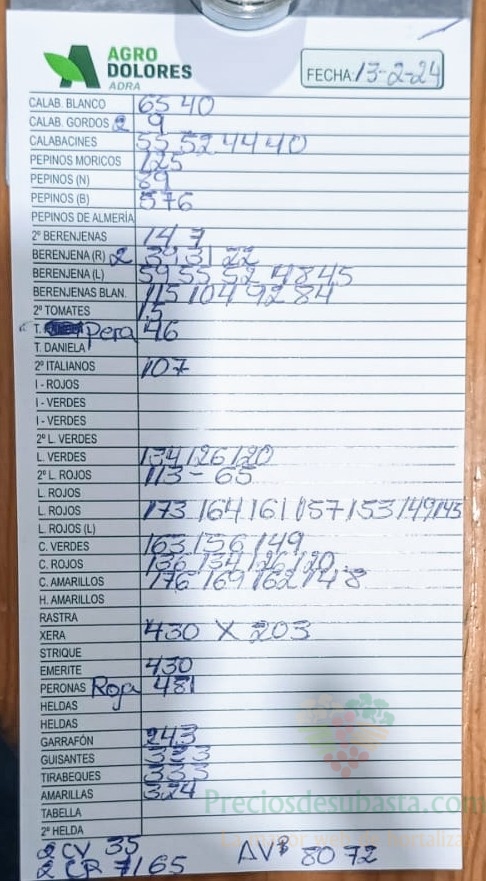 AGRO
DOLORES
ADRA
FECHA: 13-2-24
CALAB. BLANCO 65 40
CALAB. GORDOS 2 9
CALABACINES 55 52 44 40
PEPINOS MORICOS 125
PEPINOS (N) 89
PEPINOS (B) 576
PEPINOS DE ALMERÍA
2º BERENJENAS 14 7
BERENJENA (R) 2 39 31 22
BERENJENA (L) 59 55 52 48 45
BERENJENAS BLAN. 115 104 92 84
2º TOMATES 15
T. Pera 46
T. DANIELA
2º ITALIANOS 107
I - ROJOS
I - VERDES
I - VERDES
2º L. VERDES
L. VERDES 134 126 120
2º L. ROJOS 113 - 65
L. ROJOS
L. ROJOS 173 164 161 157 153 149 145
L. ROJOS (L)
C. VERDES 163 156 149
C. ROJOS 136 134 126 120
C. AMARILLOS 176 169 162 148
H. AMARILLOS
RASTRA
XERA 430 X 203
STRIQUE
EMERITE 430
PERONAS Roja 481
HELDAS
HELDAS
GARRAFÓN 243
GUISANTES 323
TIRABEQUES 333
AMARILLAS 324
Preciosdesubasta.com
TABELLA
2ª HELDA
2 CV 35
2 CR 71 65
AVB 80 72